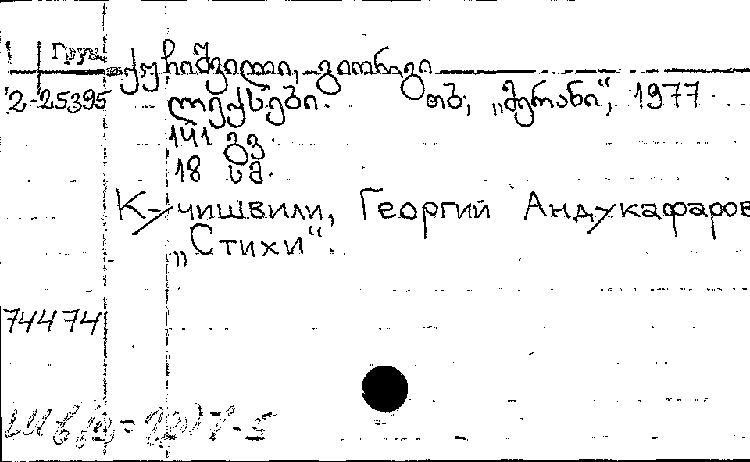 Груз
ქუჩიშვილი, გიორგი
2-25395 ლექსები. თბ., „მერანი“, 1977.
141 გვ
18 სმ.
Кучишвили, Георгий Андукафаров
„Стихи“.
74474